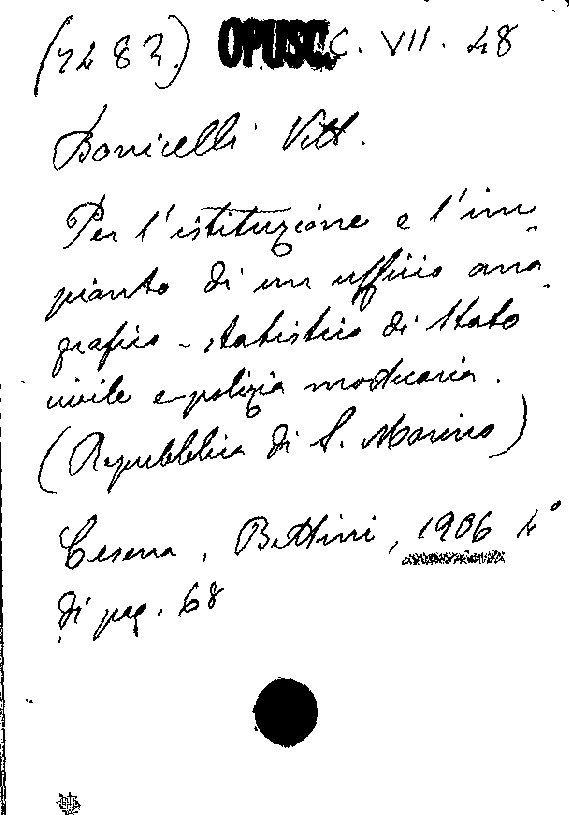 (7483) OPUSC. C. VII. 48
Bonicelli Vitt.
Per l'istituzione e l'im-
pianto di un ufficio ana-
grafico - statistico di Stato
civile e polizia mortuaria.
(Repubblica di S. Marino)
Cesena, Bettini, 1906 4°
di pag. 68